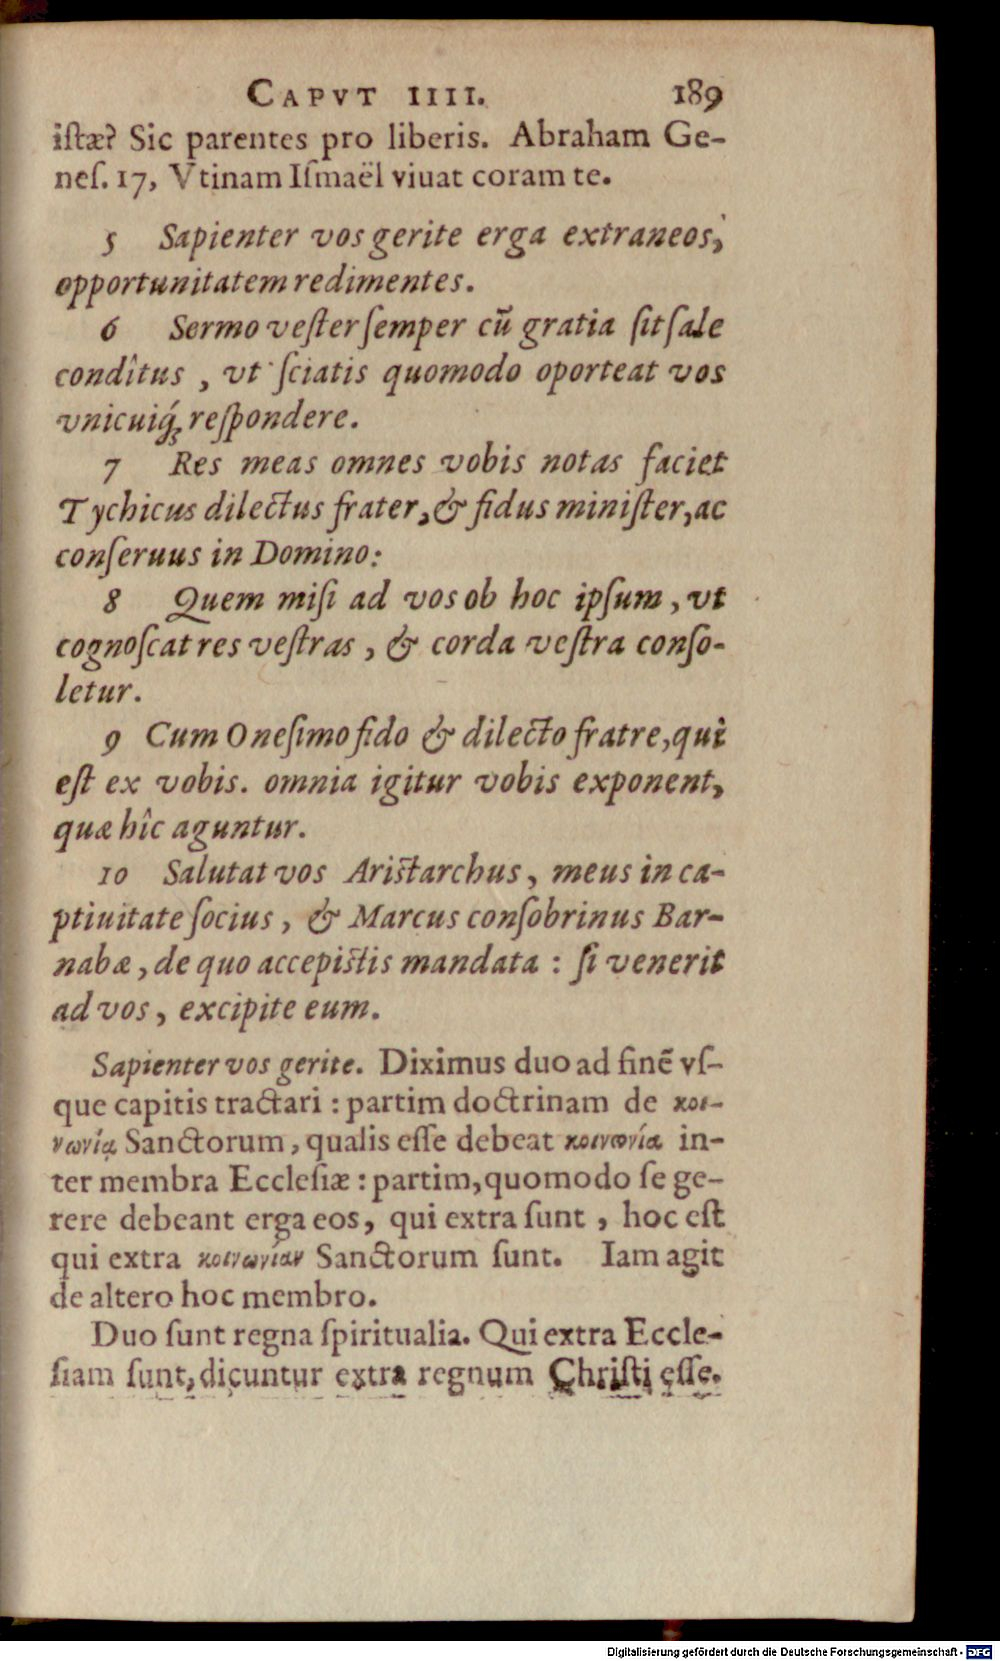 CAPVT IIII. 189
iſtæ? Sic parentes pro liberis. Abraham Ge-
neſ. 17, Vtinam Iſmaël viuat coram te.
5 Sapienter vos gerite erga extraneos,
opportunitatem redimentes.
6 Sermo veſter ſemper cū gratia ſit ſale
condîtus, vt ſciatis quomodo oporteat vos
vnicuiq́; reſpondere.
7 Res meas omnes vobis notas faciet
Tychicus dilectus frater, & fidus miniſter, ac
conſeruus in Domino:
8 Quem miſi ad vos ob hoc ipſum, vt
cognoſcat res veſtras, & corda veſtra conſo-
letur.
9 Cum Oneſimo fido & dilecto fratre, qui
eſt ex vobis. omnia igitur vobis exponent,
quæ hîc aguntur.
10 Salutat vos Ariſtarchus, meus in ca-
ptiuitate ſocius, & Marcus conſobrinus Bar-
nabæ, de quo accepiſtis mandata: ſi venerit
ad vos, excipite eum.
Sapienter vos gerite. Diximus duo ad finē vſ-
que capitis tractari: partim doctrinam de κοι-
νωνίᾳ Sanctorum, qualis eſſe debeat κοινωνία in-
ter membra Eccleſiæ: partim, quomodo ſe ge-
rere debeant erga eos, qui extra ſunt, hoc eſt
qui extra κοινωνίαν Sanctorum ſunt. Iam agit
de altero hoc membro.
Duo ſunt regna ſpiritualia. Qui extra Eccle-
ſiam ſunt, dicuntur extra regnum Chriſti eſſe.
Digitalisierung gefördert durch die Deutsche Forschungsgemeinschaft - DFG